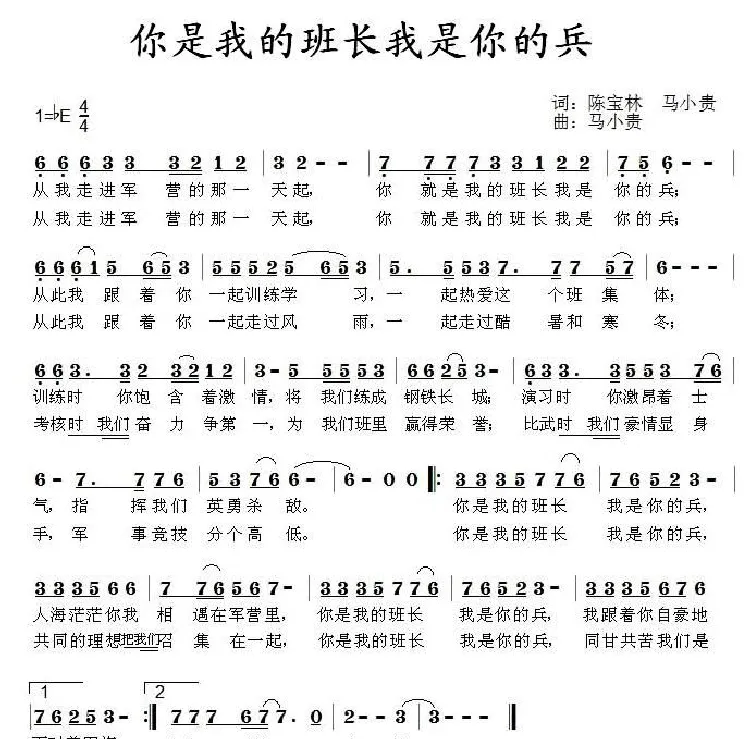 你是我的班长我是你的兵
词：陈宝林 马小贵
1=♭E 4/4
曲：马小贵
6 6 6 3 3 3 2 1 2 | 3 2 - - | 7 7 7 7 3 3 1 2 2 | 7 5 6 - - |
从我走进军 营的那一 天起， 你 就是我的班长我是 你的兵；
从我走进军 营的那一 天起， 你 就是我的班长我是 你的兵；
6 6 6 1 5 6 5 3 | 5 5 5 2 5 5 6 5 3 | 5 . 5 5 3 7 . 7 7 5 7 | 6 - - - |
从此我 跟着你 一起训练学 习，一 起热爱这 个班集 体；
从此我 跟着你 一起走过风 雨，一 起走过酷 暑和寒 冬；
6 6 3 . 3 2 3 2 1 2 | 3 - 5 5 5 5 3 | 6 6 2 5 3 - | 6 3 3 . 3 5 5 5 3 7 6 |
训练时 你饱 含着激 情，将 我们练成 钢铁长 城；演习时 你激昂着士
考核时 我们奋 力争第 一，为 我们班里 赢得荣 誉；比武时 我们豪情显身
6 - 7 . 7 7 6 | 5 3 7 6 6 - | 6 - 0 0 ‖: 3 3 3 5 7 7 6 | 7 6 5 2 3 - |
气，指 挥我们 英勇杀 敌。 你是我的班长 我是你的兵，
手，军 事竞技 分个高 低。 你是我的班长 我是你的兵，
3 3 3 5 6 6 | 7 7 6 5 6 7 - | 3 3 3 5 7 7 6 | 7 6 5 2 3 - | 3 3 3 5 6 7 6 |
人海茫茫你我 相 遇在军营里， 你是我的班长 我是你的兵， 我跟着你自豪地
共同的理想把我们召 集 在一起， 你是我的班长 我是你的兵， 同甘共苦我们是
1 2
7 6 2 5 3 - :‖ 7 7 7 6 7 7 . 0 | 2 - - 3 | 3 - - - ‖